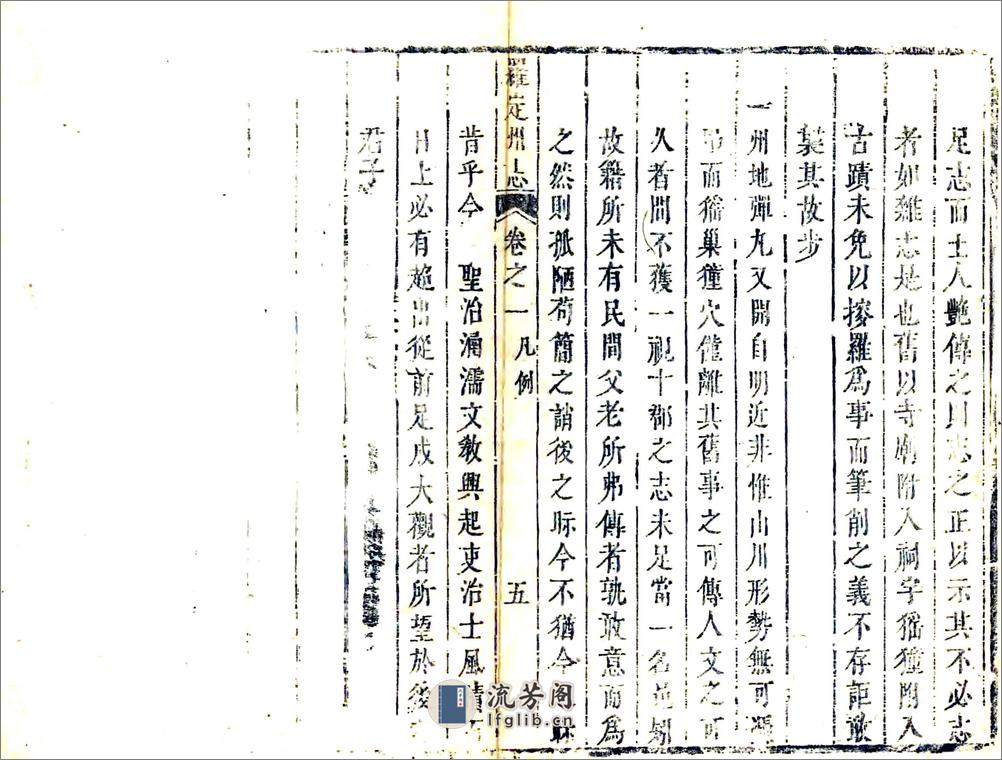 足志而士人艷傳之則志之正以示其不必志
者如雜志是也舊以寺廟附入祠宇猺獞附入
古蹟未免以搜羅爲事而筆削之義不存詎敢
襲其故步
一州地彈丸又開自明近非惟山川形勢無可憑
弔而猺巢獞穴僅離其舊事之可傳人文之可
久者間不獲一視十郡之志未足當一名邑矧
故籍所未有民間父老所弗傳者孰敢意而爲
之然則孤陋苟簡之誚後之眎今不猶今
羅定州志
卷之一
凡例
五
昔乎今 聖治涵濡文敎興起吏治士風
日上必有超出從前足成大觀者所望於後
君子
流芳阁
lfglib.cn